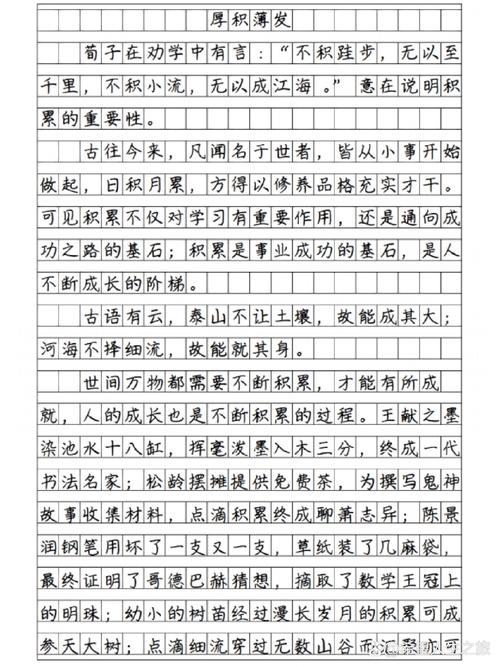 厚积薄发
荀子在劝学中有言：“不积跬步，无以至
千里，不积小流，无以成江海。”意在说明积
累的重要性。
古往今来，凡闻名于世者，皆从小事开始
做起，日积月累，方得以修养品格充实才干。
可见积累不仅对学习有重要作用，还是通向成
功之路的基石；积累是事业成功的基石，是人
不断成长的阶梯。
古语有云，泰山不让土壤，故能成其大；
河海不择细流，故能就其身。
世间万物都需要不断积累，才能有所成
就，人的成长也是不断积累的过程。王献之墨
染池水十八缸，挥毫泼墨入木三分，终成一代
书法名家；松龄摆摊提供免费茶，为撰写鬼神
故事收集材料，点滴积累终成聊萧志异；陈景
润钢笔用坏了一支又一支，草纸装了几麻袋，
最终证明了哥德巴赫猜想，摘取了数学王冠上
的明珠；幼小的树苗经过漫长岁月的积累可成
参天大树；点滴细流穿过无数山谷而汇聚
之旅